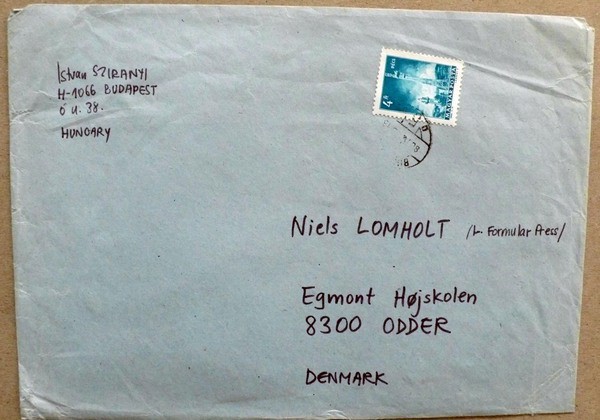 Istvan SZIRANYI
H-1066 BUDAPEST
Ó u. 38.
HUNGARY
4 Ft
PÉCS
MAGYAR POSTA
Niels LOMHOLT /L. Formular Press/
Egmont Højskolen
8300 ODDER
DENMARK